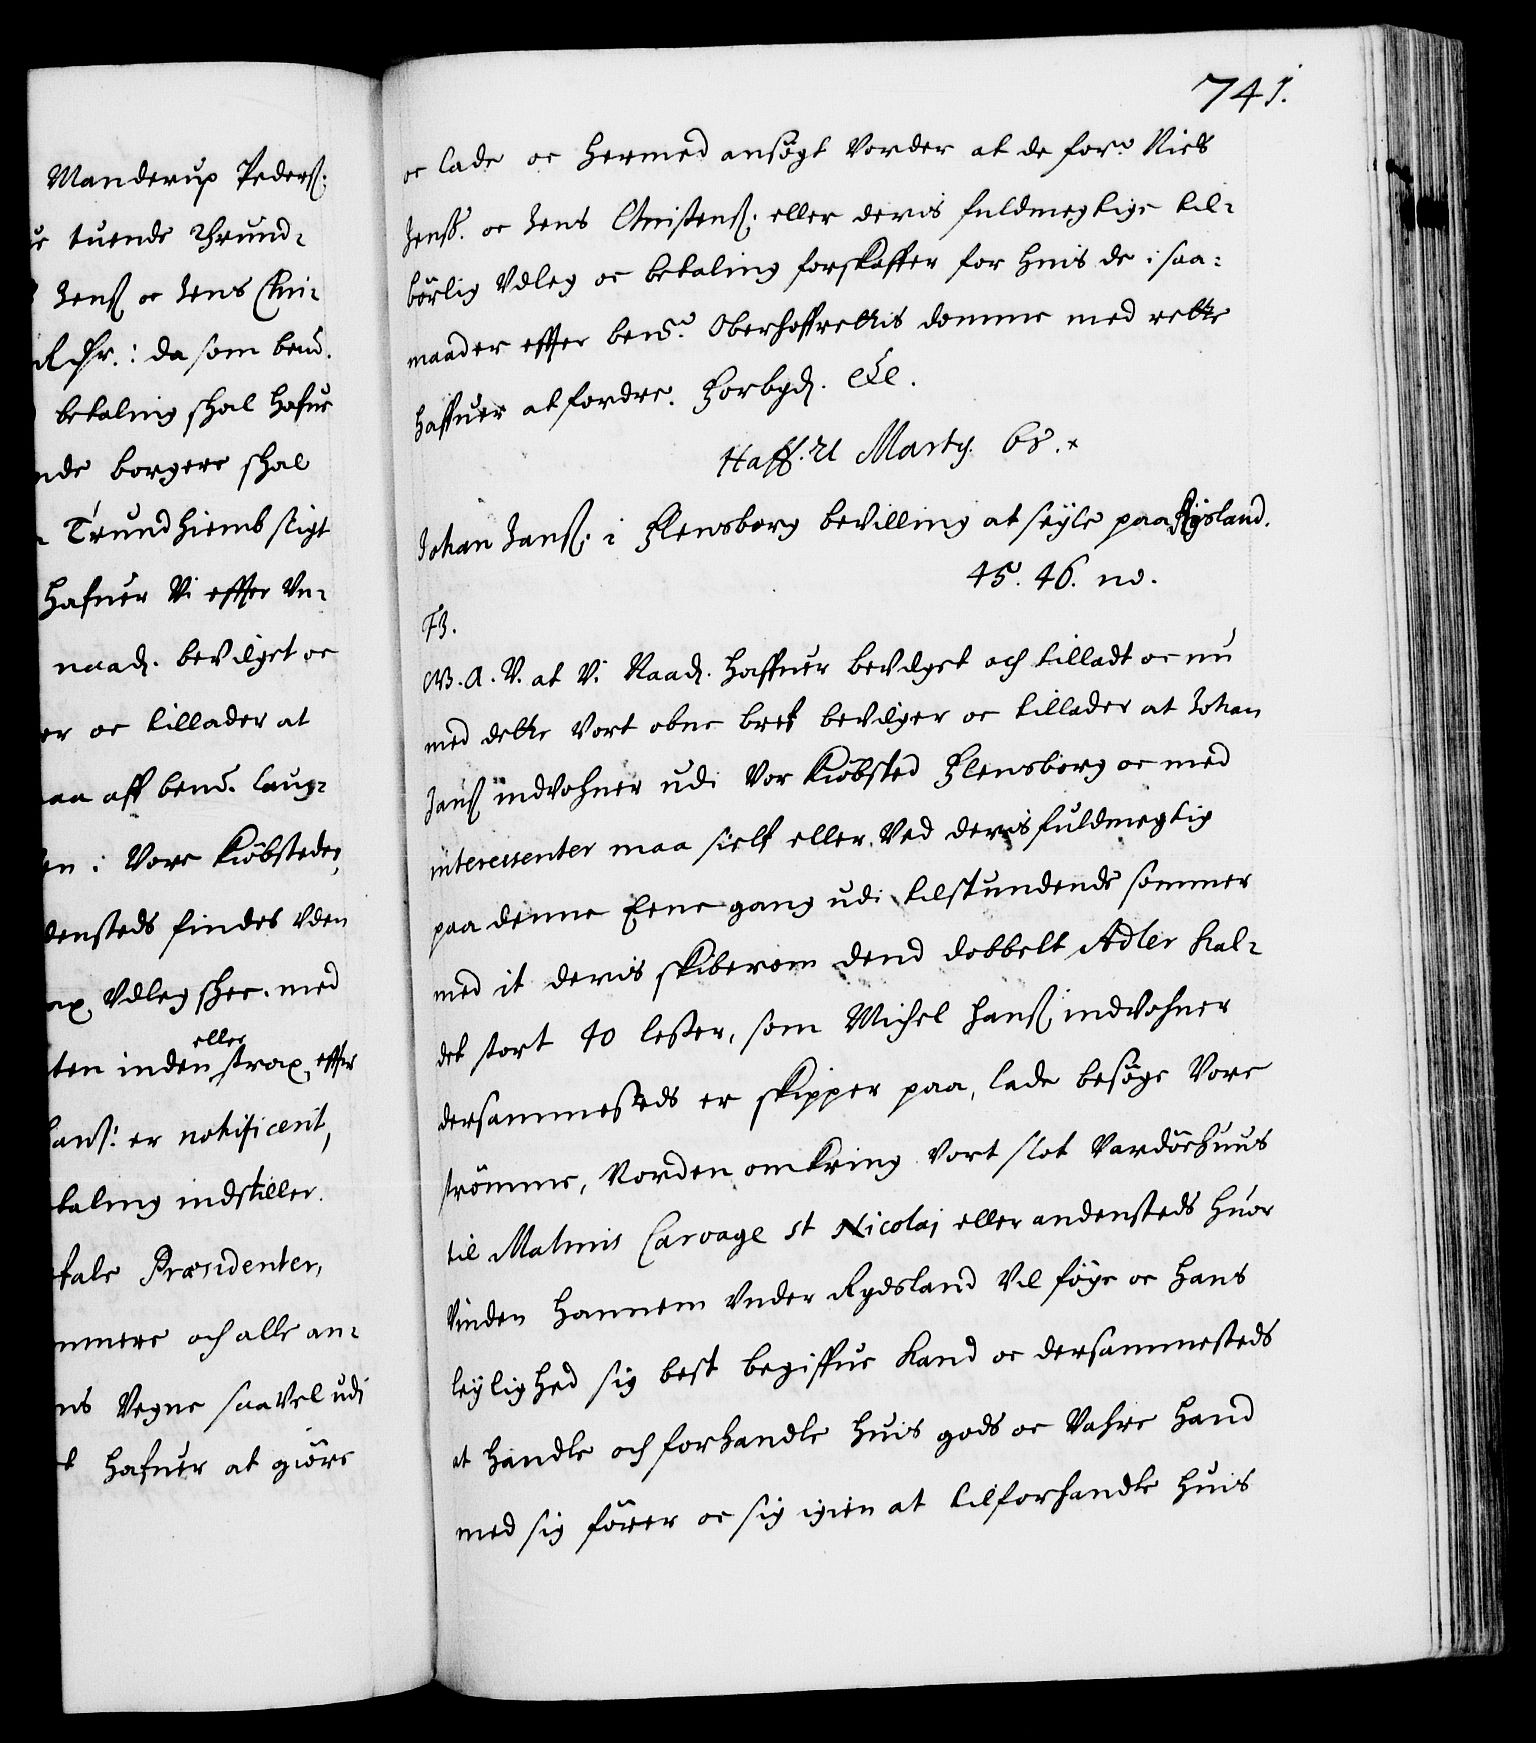 Manderup Peders.
tuende Thrund-
Jens oc Jens Chri-
Rhr.: da som bemt.
betaling skal hafue
nde borgere skal
Trundhiembs stigt
Hafuer Vi effter Vn-
naad. bevilget oc
er oc tillader at
aa aff bemt. laug-
en i Vore Kiöbsteder,
densteds findes vden
ax Vdleg skee. med
eller
ten inden strax effter
Hans: er notificerit,
taling indstiller.
tale Præsidenter,
mmere och alle an-
ns Vegne saavel udi
t hafuer at giöre
741.
oc lade oc hermed ansøgt Vorder at de forne Niels
Jenss. oc Jens Christens. eller deris fuldmegtige til-
börlig Vdleg oc betaling forskaffer for huis de i saa-
maader effter bemte Oberhoffrettis domme med rette
haffuer at fordre. Forbyd. etc.
Haff. 21 Martij. 68.
Johan Jans. i Flensborg bevilling at seyle paa Rysland.
45. 46. no.
F3.
G. A. V. at Vi Naad. haffuer bevilget och tilladt oc nu
med dette Vort obne bref bevilger oc tillader at Johan
Jans indvohner udi Vor Kiöbsted Flensborg oc med
interessenter maa sielf eller Ved deris fuldmegtig
paa denne Eene gang udi tilstundende sommer
med it deris skiberom dend dobbelt Adler kal-
det stort 40 lester, som Michel Hans indvohner
dersammesteds er skipper paa, lade besøge Vore
strömme, Norden omkring Vort slot Vardöehuus
til Malmis Carvage St Nicolaj eller andensteds huor
Vinden hannem Vnder Rydsland Vil föye oc hans
leylighed sig best begiffue kand oc dersammesteds
at handle och forhandle huis gods oc Vahre hand
med sig förer oc sig igien at tilforhandle huis